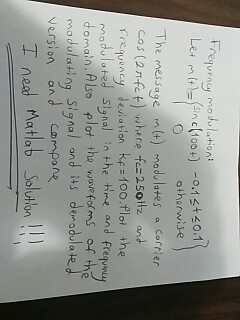 Frequency modulation:
Let m(t) = { sinc(100t) -0.1 ≤ t ≤ 0.1 }
0 otherwise
The message m(t) modulates a carrier
cos(2πfct) where fc=250Hz and
Frequency deviation kf=100. Plot the
modulated signal in the time and frequency
domain. Also plot the waveforms of the
modulating signal and its demodulated
version and compare.
I need Matlab Solution!!!